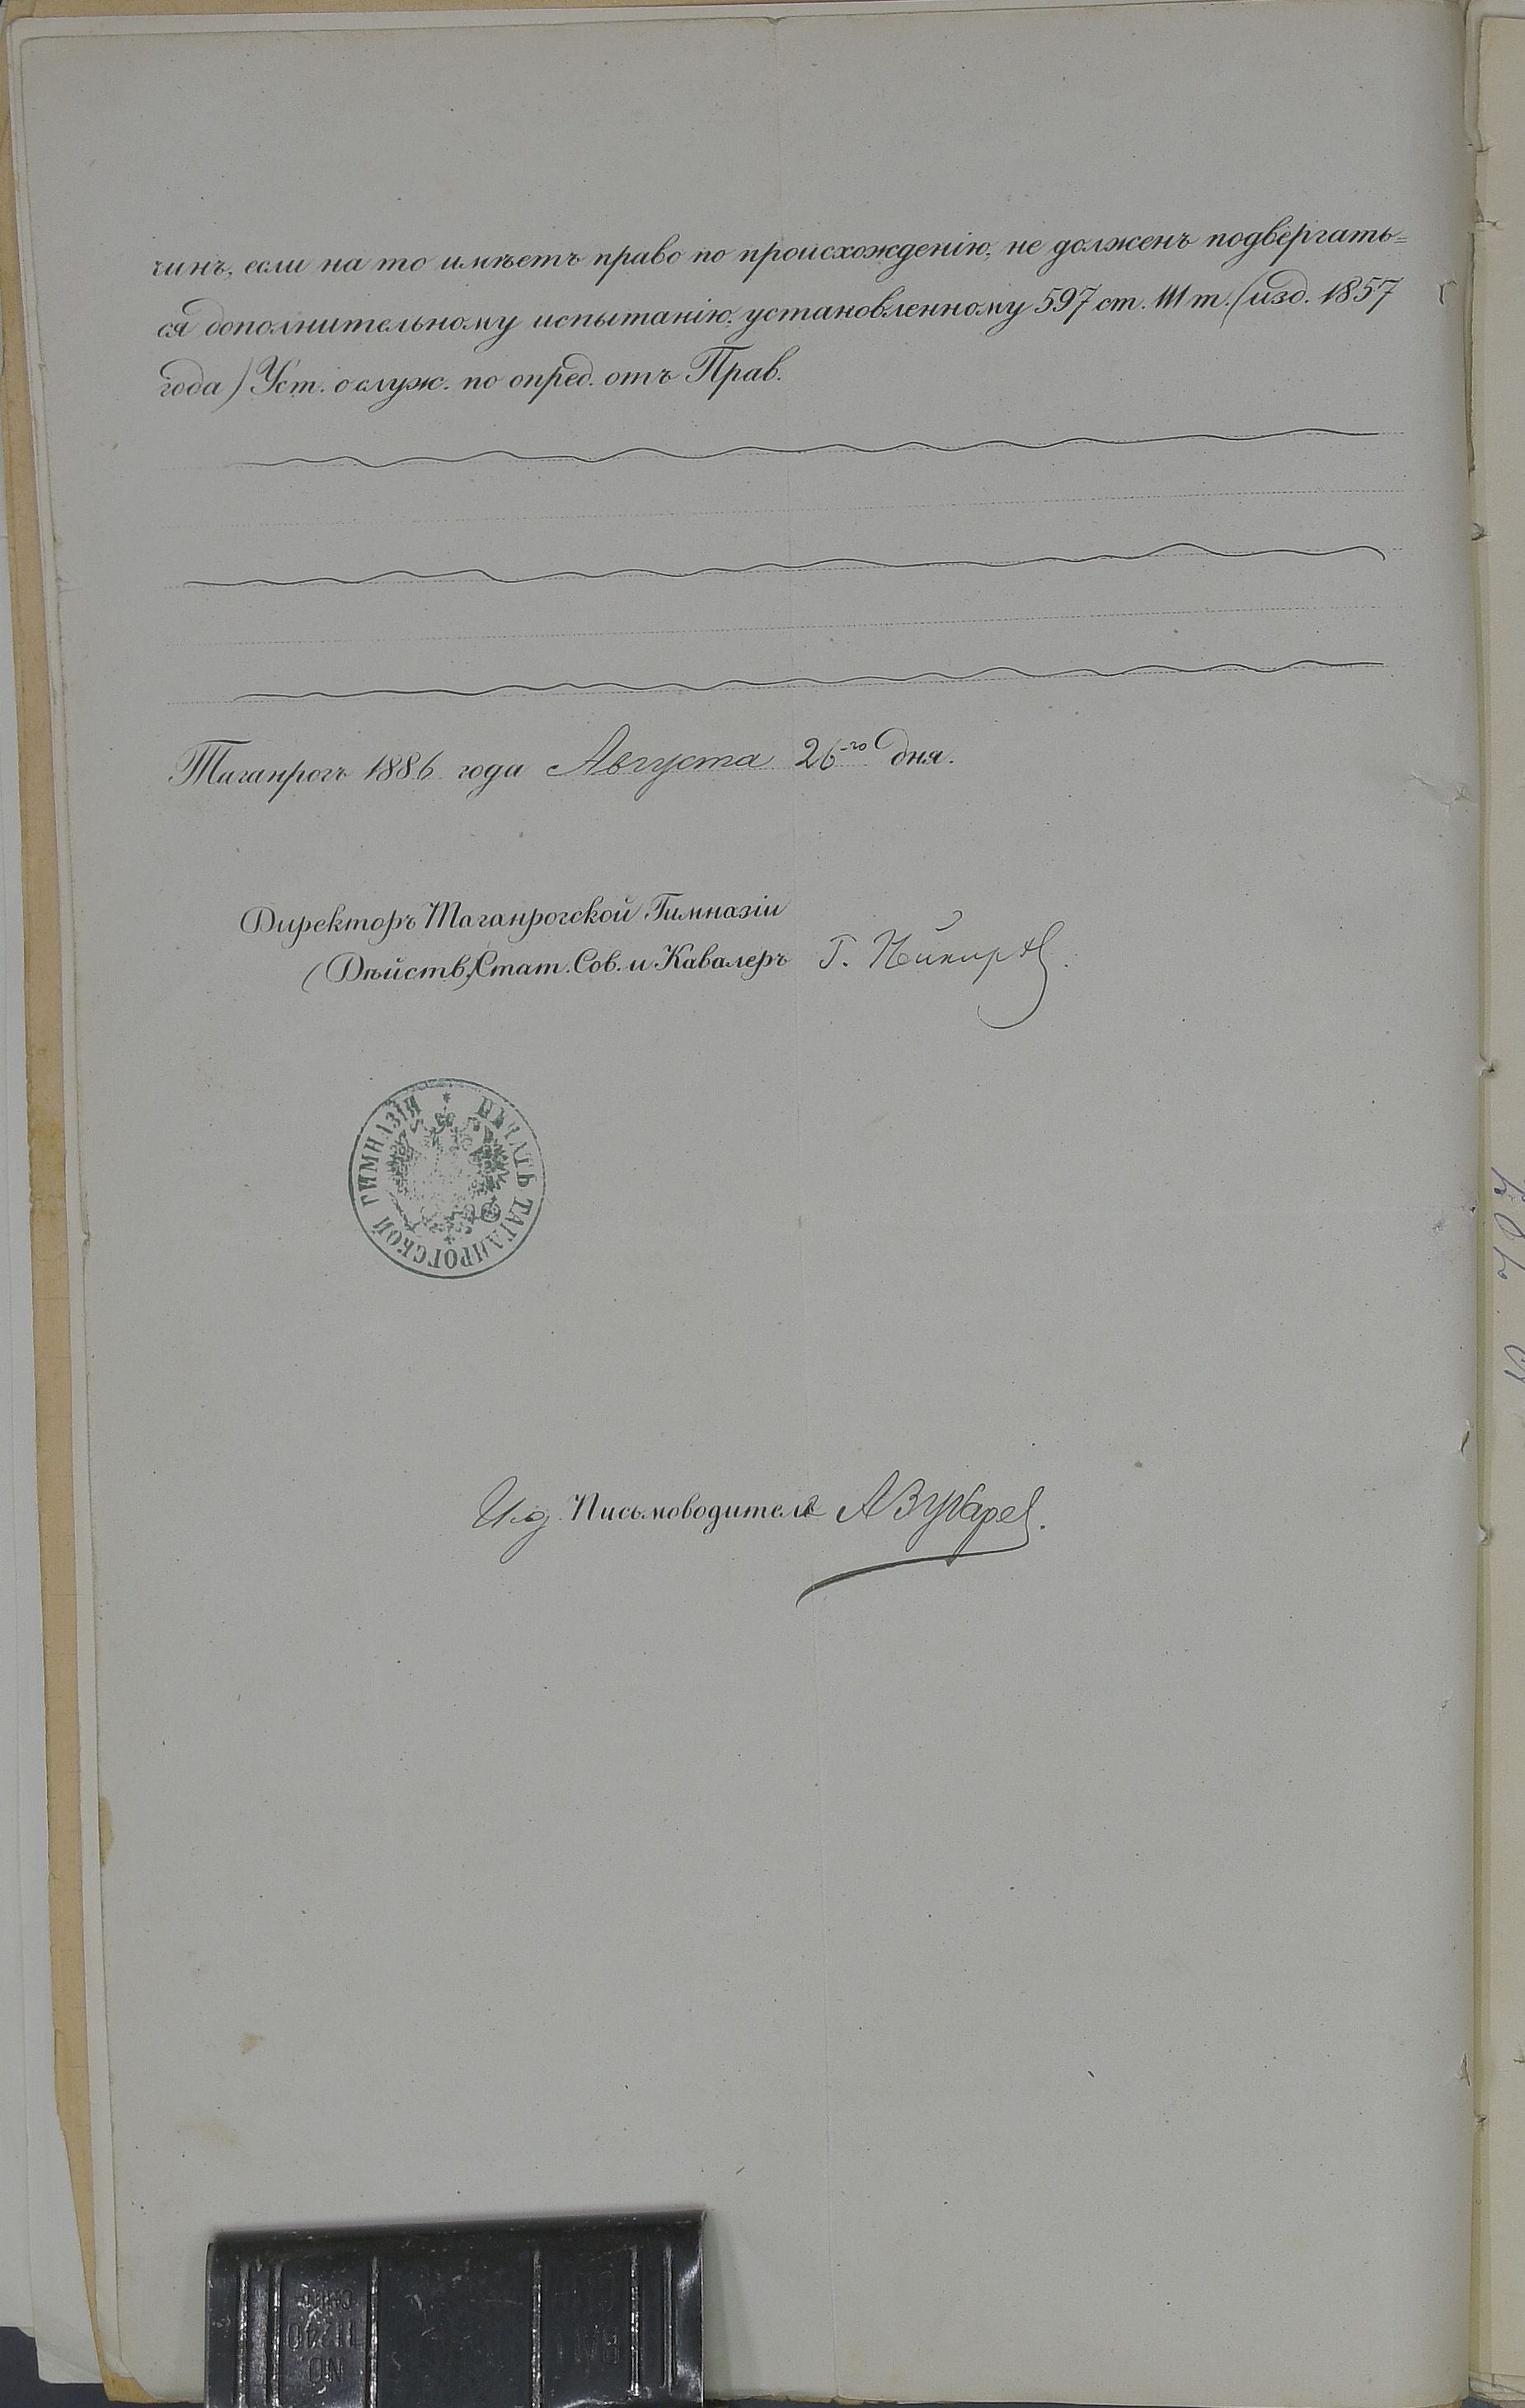 чинъ, если на то имѣетъ право по происхожденію, не долженъ подвергать=
ся дополнительному испытанію, установленному 597 ст. III т. (изд. 1857
года) Уст. о служ. по опред. отъ Прав.
Таганрогъ 1886 года Августа 26-го дня.
Директоръ Таганрогской Гимназіи
(Дѣйств.) Стат. Сов. и Кавалеръ Г.
ПЕЧАТЬ ТАГАНРОГСКОЙ ГИМНАЗІЯ
И.д. Письмоводителя А Зубарев.
NO.
11240